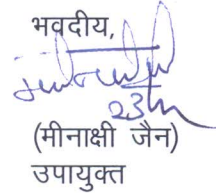 भवदीय,
23
(मीनाक्षी जैन)
उपायुक्त